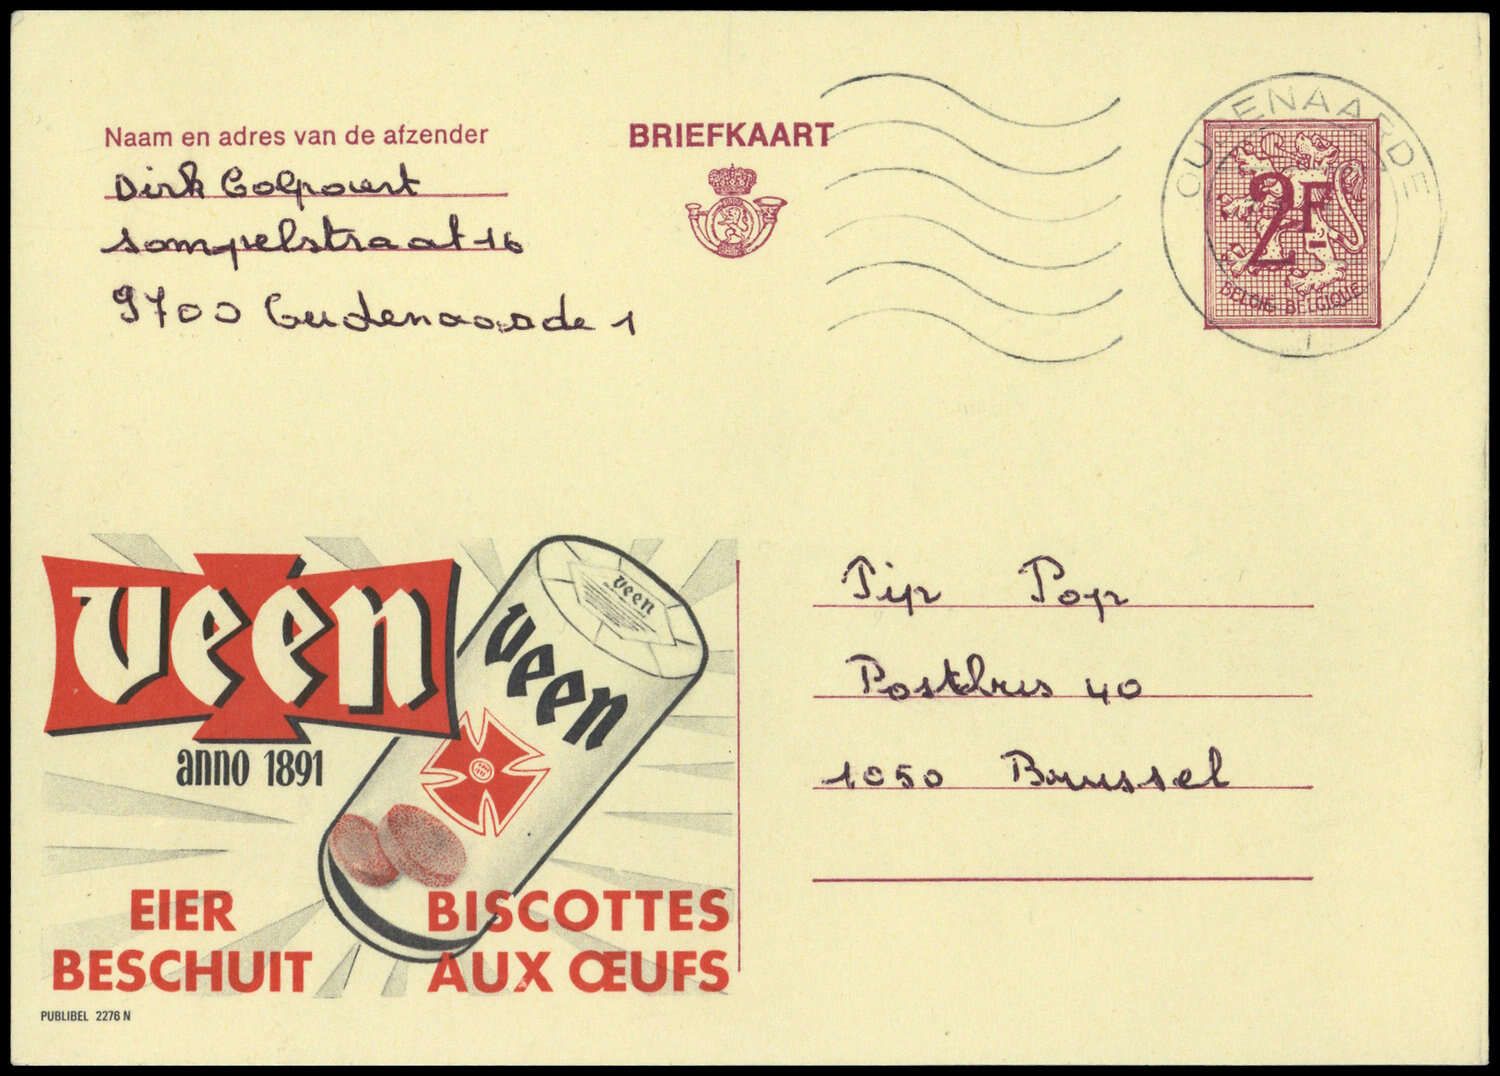 Naam en adres van de afzender
Dirk Colpaert
Sompelstraat 16
9700 Oudenaarde 1
BRIEFKAART
OUDENAARDE
1
2F
BELGIE-BELGIQUE
veen
anno 1891
veen
veen
EIER
BESCHUIT
BISCOTTES
AUX ŒUFS
PUBLIBEL 2276 N
Pip Pop
Postbus 40
1050 Brussel